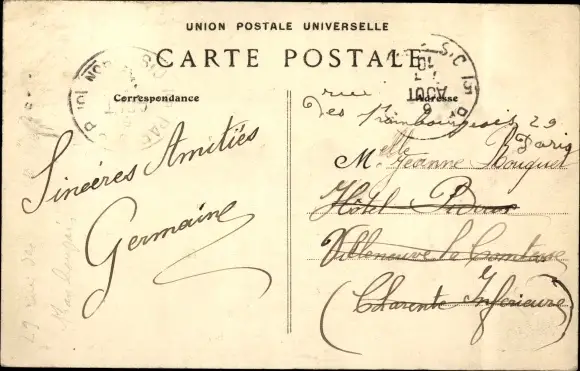 UNION POSTALE UNIVERSELLE
CARTE POSTALE
Correspondance
Adresse
Sincères Amitiés
Germaine
rue
des 29
Paris
Melle Jeanne Bouquet
Hôtel
Villeneuve la Comtesse
(Charente Inférieure)
29 rue des
S.C 15
10
AOUT